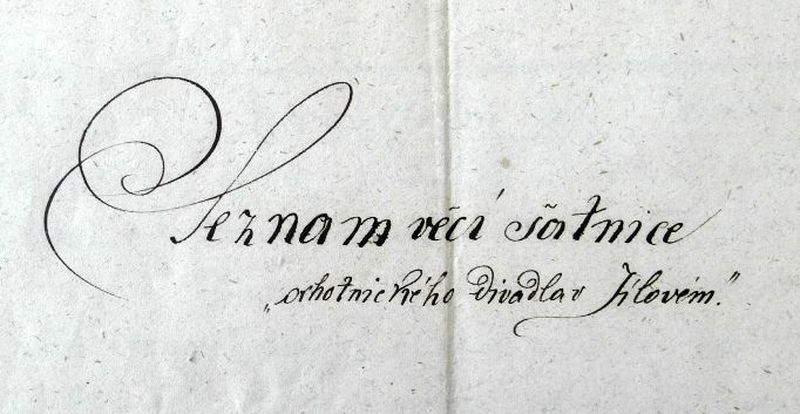 Seznam věcí šatnice
„ochotnického divadla v Jílovém."